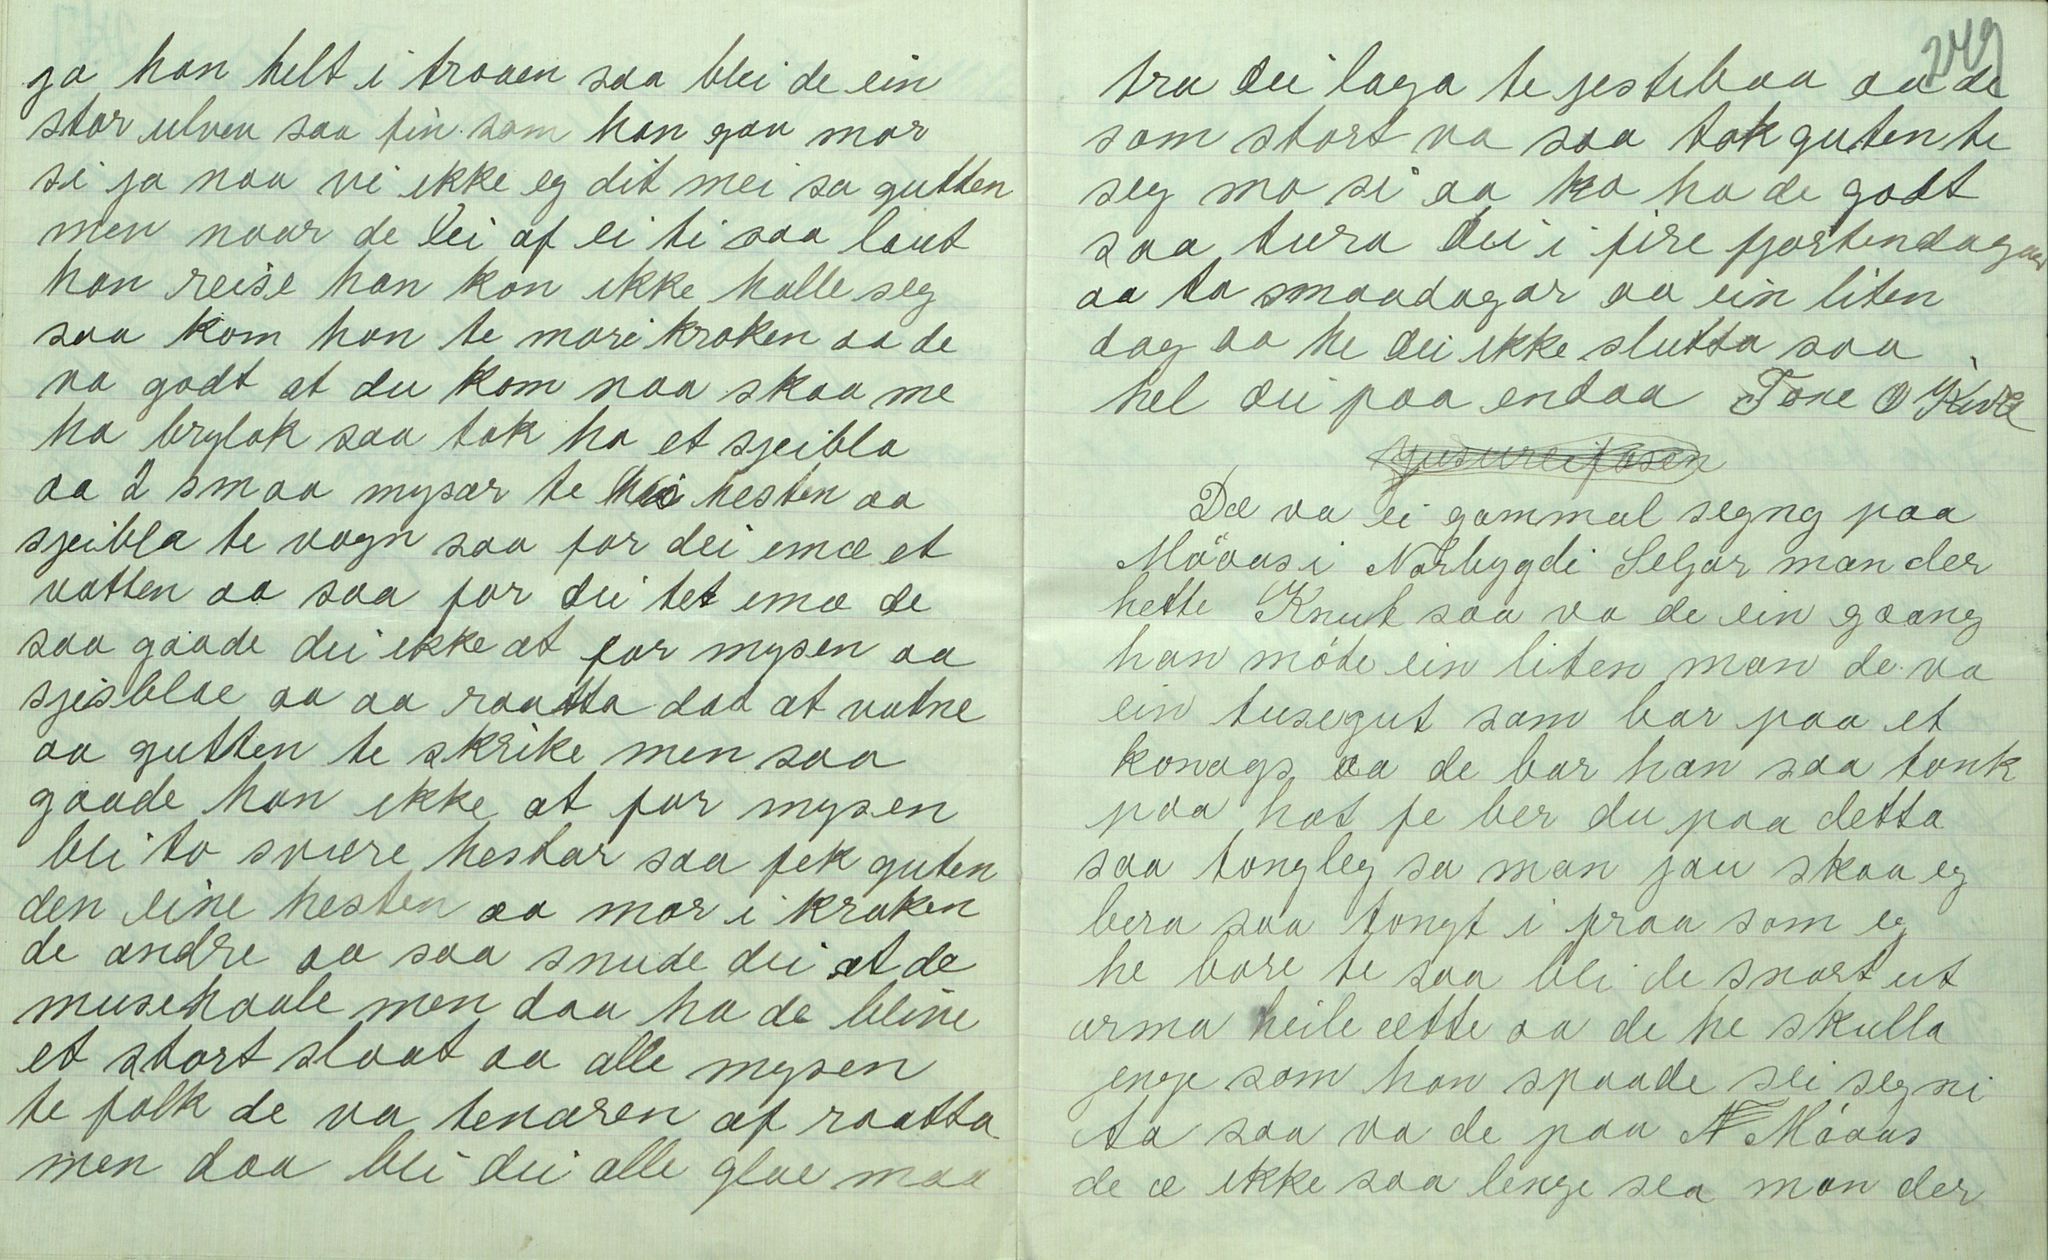 ja han helt i traaen saa blei de ein
stor ulven saa fin som han gau mor
si ja naa vi ikke eg dit mei sa gutten
men naar de lei af ei ti saa laut
han reise han kon ikke halle seg
saa kom han te mor i kroken aa de
va godt at du kom naa skaa me
ha brylok saa tok ho et sjeibla
aa 2 smaa mysar te hesten aa
sjeibla te vogn saa for dei emæ et
vatten aa saa for dei tet emæ de
saa gaade dei ikke at for mysen aa
sjeisblae aa aa raatta daa at vatne
aa gutten te skrike men saa
gaade han ikke at for mysen
blei to svære hestar saa fek guten
den eine hesten aa mor i kroken
de andre aa saa snude dei at de
musehaale men daa ha de bline
et stort slaat aa alle mysen
te folk de va tenaren af raatta
men daa blei dei alle glae maa
249
tru dei laga te jestebaa aa de
som stort va saa tok guten te
seg mo si aa ho ha de godt
saa tura dei i fire fjortendagar
aa to smaadagar aa ein liten
dag aa he dei ikke slutta saa
hel dei paa endaa Tone O Kivle
Jusureifosen
Dæ va ei gammal segng paa
Möaas i Nörbygdi Seljor man der
hette Knut saa va de ein gaang
han möte ein liten man de va
ein tusegut som bar paa et
konags aa de bar han saa tonk
paa hot fe ber du paa detta
saa tongleg sa man jau skaa eg
bera saa tongt i fraa som eg
he bore te saa bli de snart ut
arma heile ætte aa de he skulla
jenge som han spaade sei segni
ta saa va de paa N Möaas
de æ ikke saa lenge sea man der